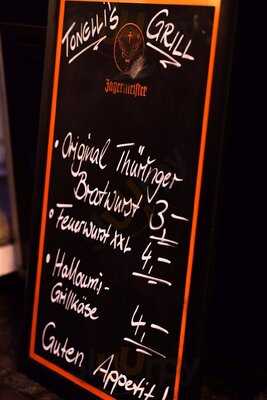 TONELLI'S GRILL
Jägermeister
• Original Thüringer
Bratwurst 3,-
• Feuerwurst XXL
4,-
• Halloumi-
Grillkäse
4,-
Guten Appetit!